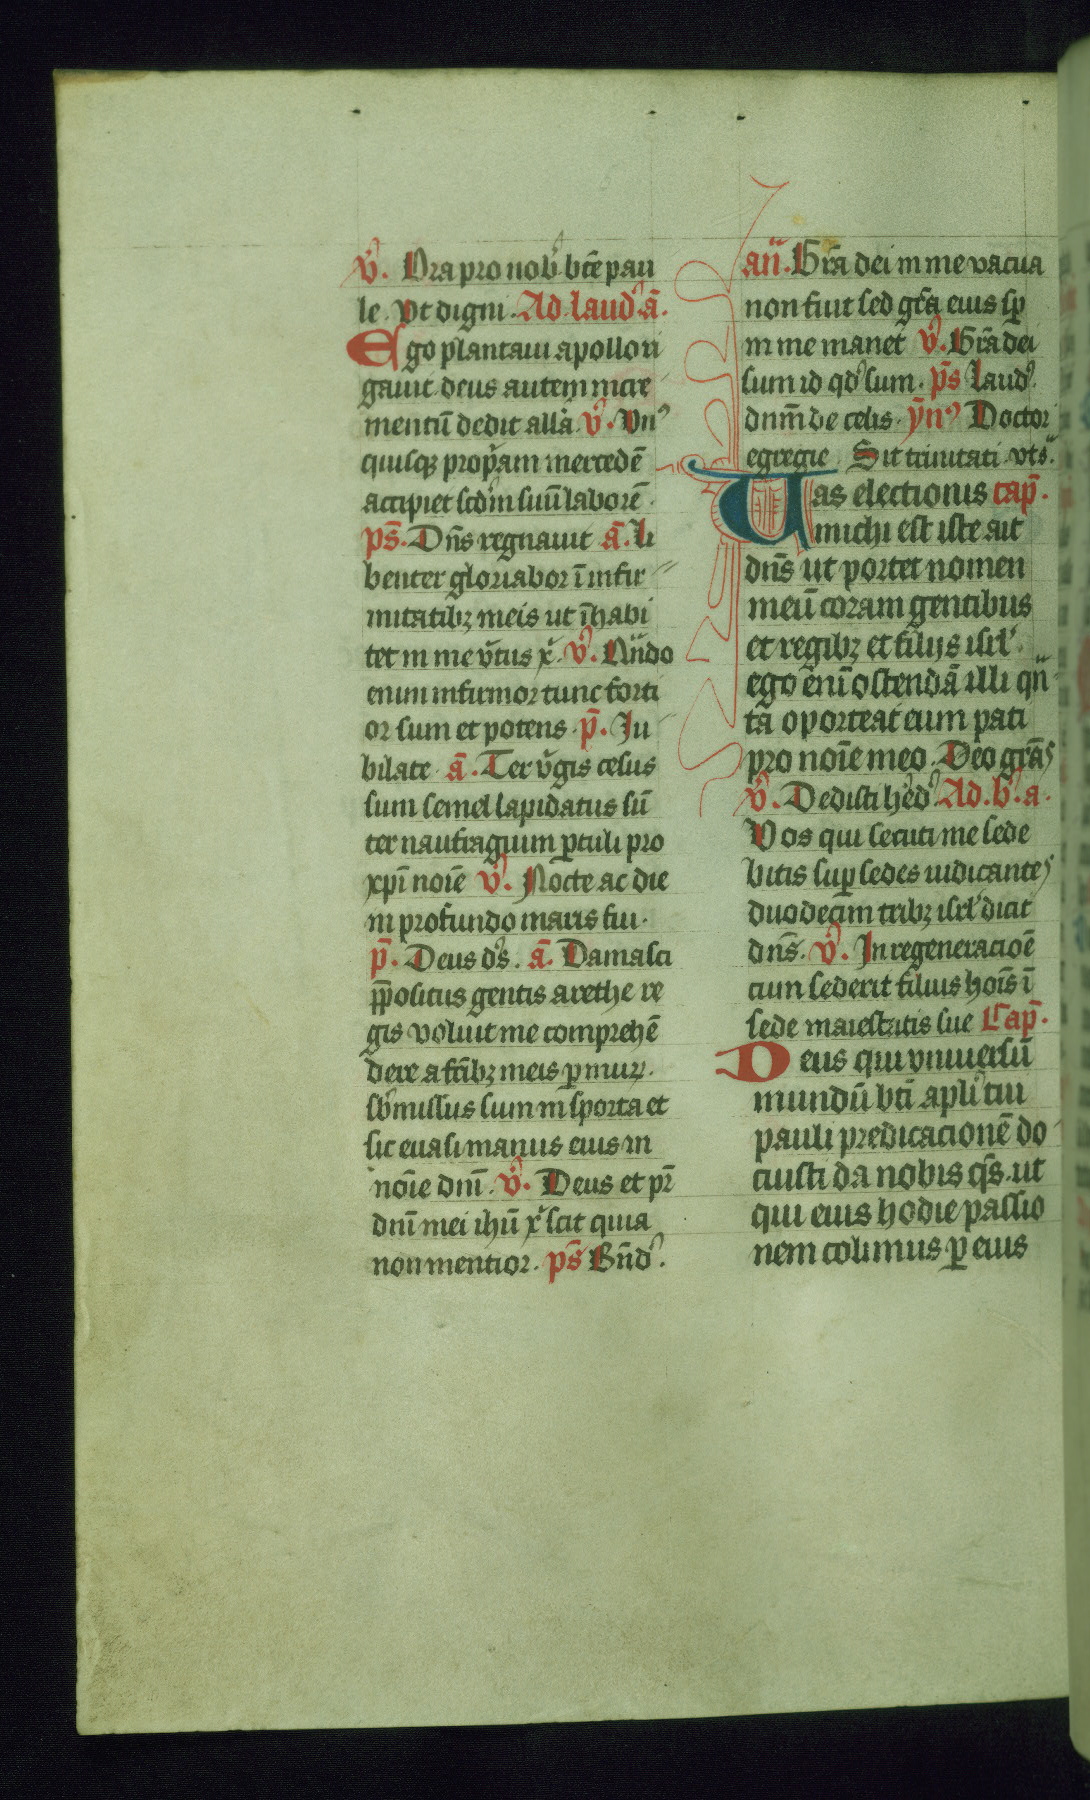 v̉. Ora pro nob̉ btē pau
le. Vt digni. Ad laud̉ ā.
Ego plantaui apollo ri
gauit deus autem incre
mentū dedit alla̓. v̉. Vn̉
quisqꝫ prop̓am mercedē
accipiet scd̓m suū laborē.
ps̄. Dn̄s regnauit ā. Li
benter gloriabor ī infir
mitatibꝫ meis ut īhabi
tet in me v̓tus x̓. v̉.
enim infirmor tunc forti
or sum et potens. p̄. Ju
bilate ā. Ter v̓gis cesus
sum semel lapidatus sū
ter naufragium ꝑtuli pro
xpī noīe v̉. Nocte ac die
in profundo maris fui.
p̄. Deus ds̉. ā. Damasci
p̄positus gentis arethe re
gis voluit me comprehē
dere a fr̄ibꝫ meis ꝑ muꝝ.
sb̓missus sum in sporta et
sic euasi manus eius in
noīe dnī. v̉. Deus et pr̄
dnī mei ihū x̓ scit quia
non mentior. ps̄ Bn̄d̉.
an̄. Gr̄a dei in me vacua
non fuit sed gr̄a eius sꝑ
in me manet v̉. Gr̄a dei
sum id qd̉ sum. ps̄ Laud̉.
dnm̄ de celis. ym̉ Doctor
egregie Sit trinitati vts̉.
Vas electionis cap̄.
michi est iste ait
dn̄s ut portet nomen
meū coram gentibus
et regibꝫ et filijs isrl̓.
ego enī ostendā illi qn̄
ta oporteat eum pati
pro noīe meo. Deo grās
v̉. Dedisti hēd̉. Ad. b̉. a.
Vos qui secuti me sede
bitis suꝑ sedes iudicantes
duodecim tribꝫ isrl̓ dicit
dn̄s. v̉. In regeneracioē
cum sederit filius hoīs ī
sede maiestatis sue Cap̄.
Deus qui vniuersū
mundū btī apl̓i tui
pauli predicacionē do
cuisti da nobis qs̄. ut
qui eius hodie passio
nem colimus ꝑ eius